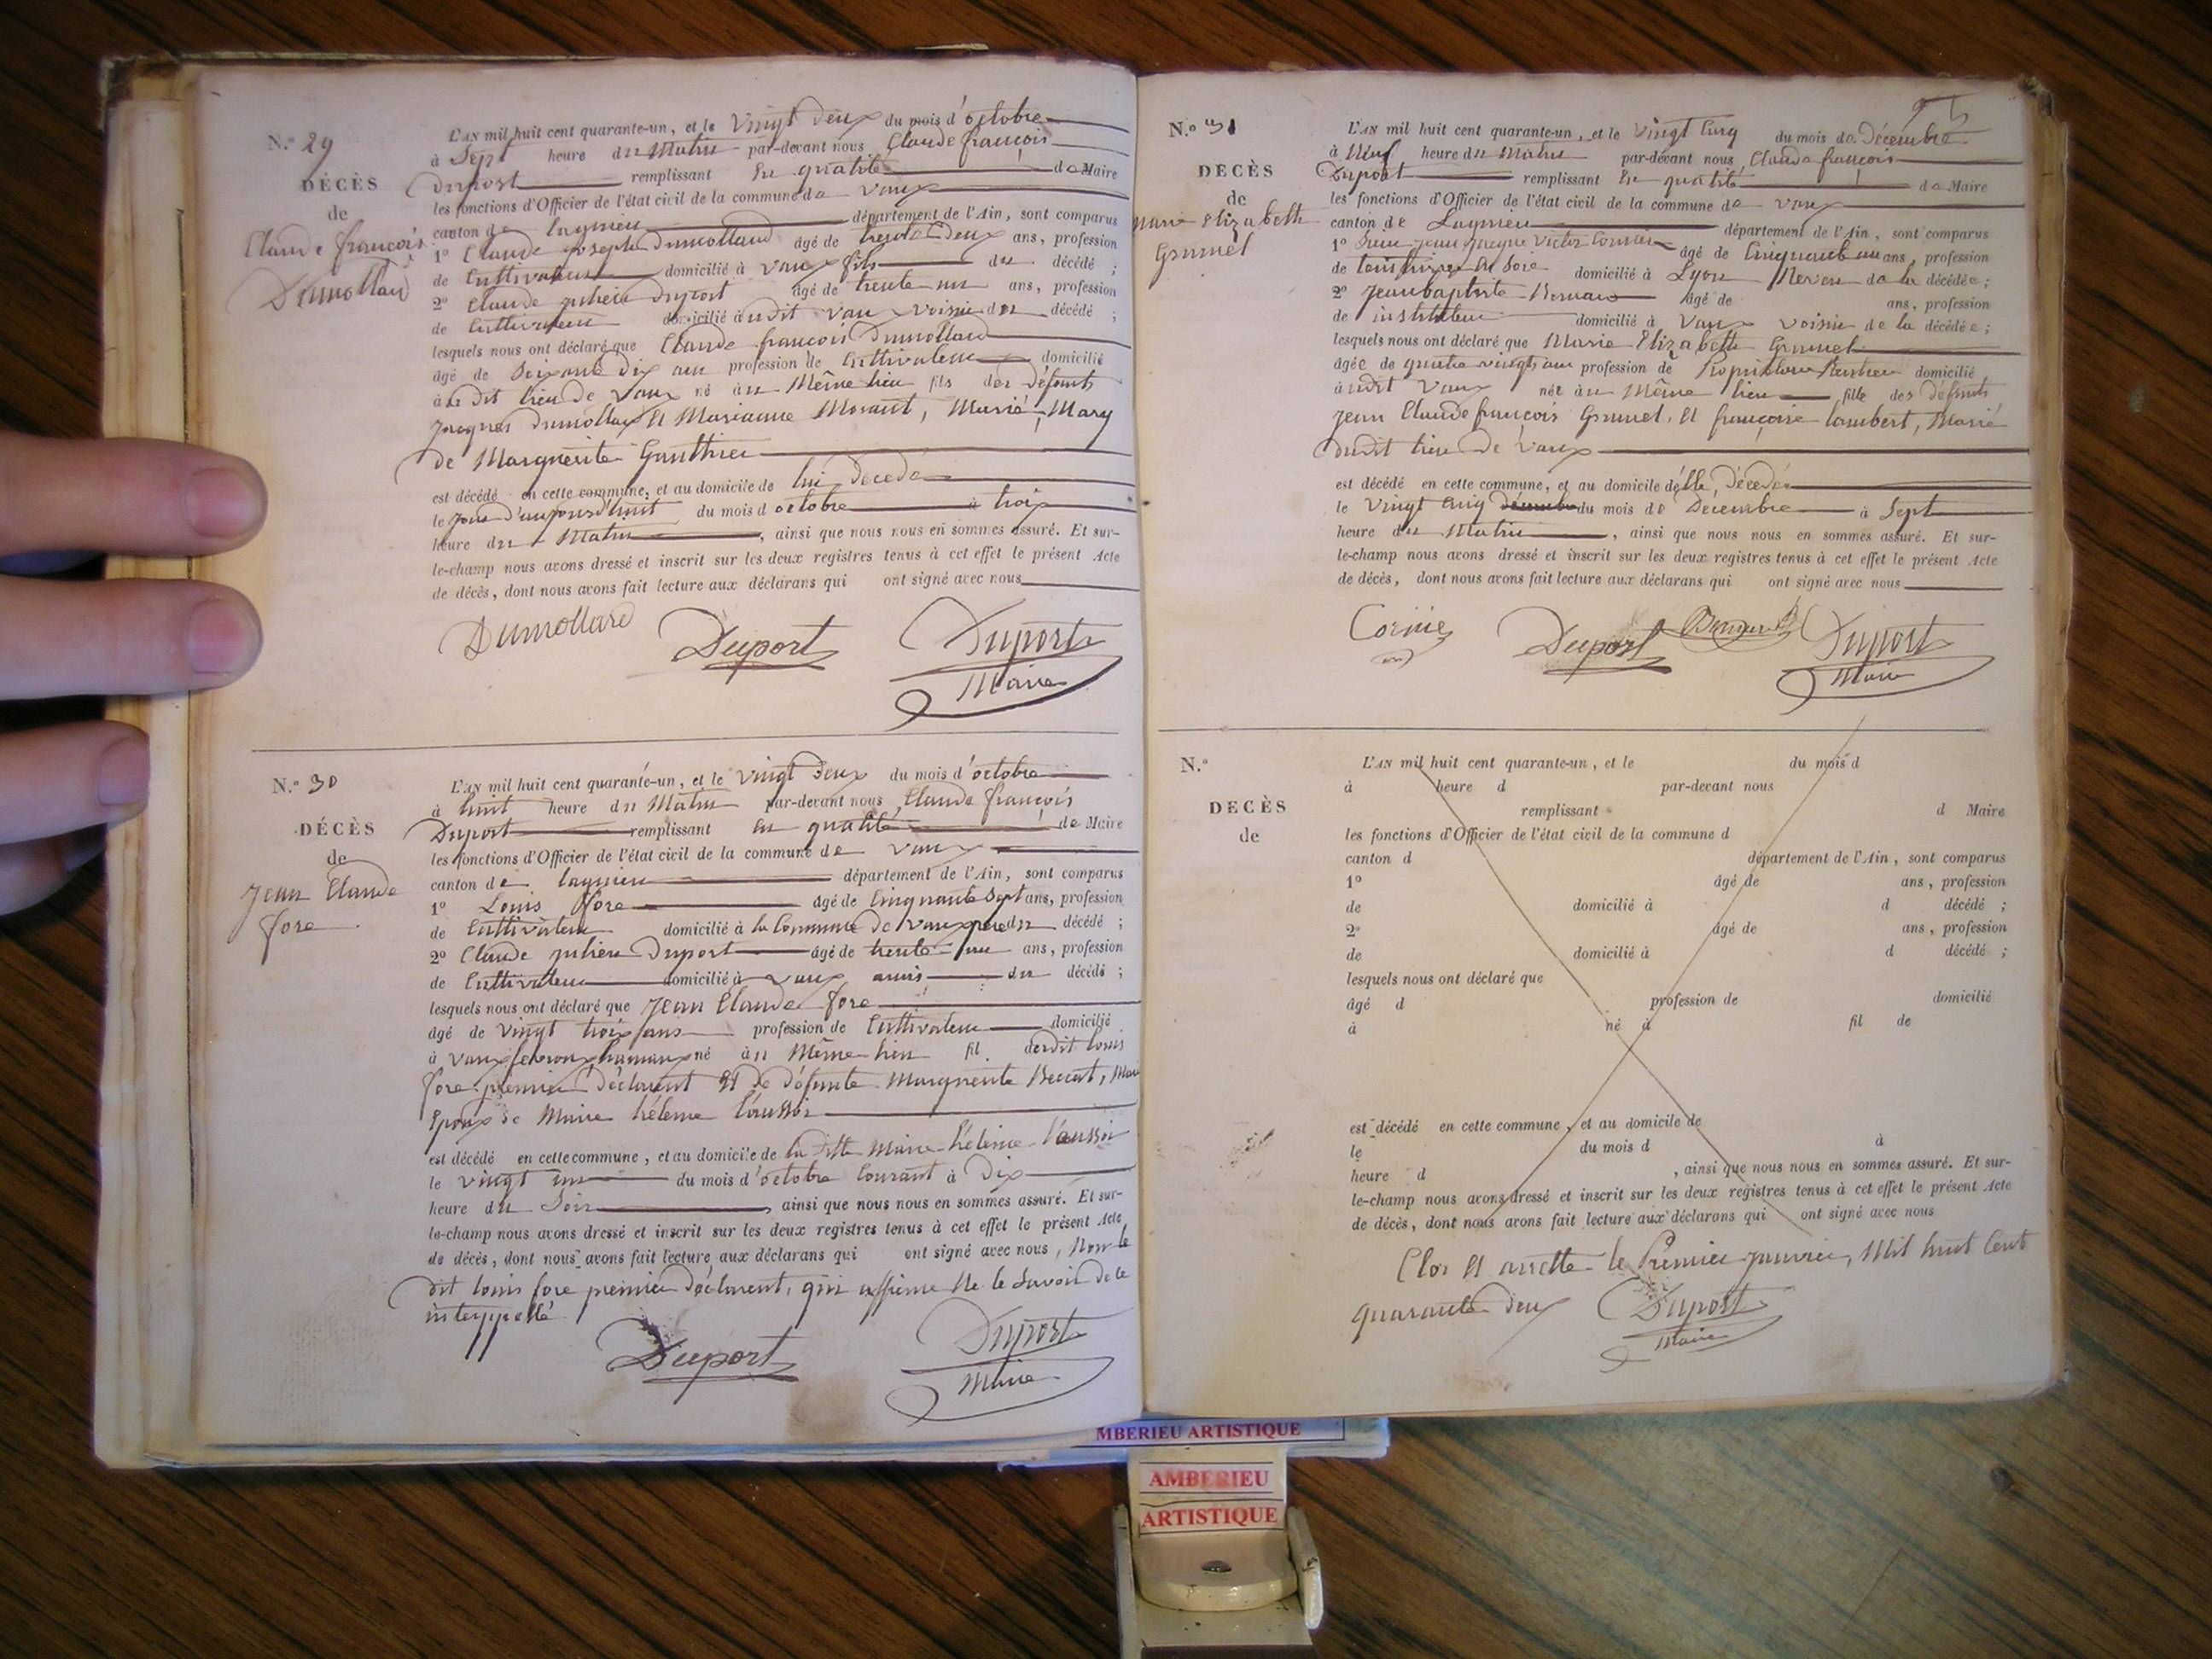 N.o 29
DÉCÈS
de
Claude françois
Dumollard
L'AN mil huit cent quarante-un, et le vingt deux du mois d'octobre
à Sept heure du Matin par-devant nous Claude françois
Duport remplissant En qualité de Maire
les fonctions d'Officier de l'état civil de la commune de Vaux
canton de Lagnieu département de l'Ain, sont comparus
1o Claude Joseph Dumollard âgé de trente Deux ans, profession
de Cultivateur domicilié à Vaux fils du décédé ;
2o Claude julien Duport âgé de trente un ans, profession
de Cultivateur domicilié audit Vaux voisin du décédé ;
lesquels nous ont déclaré que Claude françois Dumollard
âgé de Soixante Dix ans profession de Cultivateur domicilié
au dit lieu de Vaux né au Même lieu fils des défunts
Jacques Dumollard Et Marianne Morant, Marié, Mary
de Marguerite Gauthier
est décédé en cette commune, et au domicile de lui Décédé
le jour d'aujourd'huit du mois d octobre à trois
heure du Matin, ainsi que nous nous en sommes assuré. Et sur-
le-champ nous avons dressé et inscrit sur les deux registres tenus à cet effet le présent Acte
de décès, dont nous avons fait lecture aux déclarans qui ont signé avec nous
Dumollard Duport Duport
Maire
N.o 30
DÉCÈS
de
Jean Claude
fore
L'AN mil huit cent quarante-un, et le vingt Deux du mois d'octobre
à huit heure du Matin par-devant nous Claude françois
Duport remplissant En qualité de Maire
les fonctions d'Officier de l'état civil de la commune de Vaux
canton de Lagnieu département de l'Ain, sont comparus
1o Louis fore âgé de Cinquante Sept ans, profession
de Cultivateur domicilié à la Commune de Vaux père du décédé ;
2o Claude julien Duport âgé de trente un ans, profession
de Cultivateur domicilié à Vaux amis du décédé ;
lesquels nous ont déclaré que Jean Claude fore
âgé de vingt trois ans profession de Cultivateur domicilié
à Vaux né au Même lieu fil dudit Louis
fore premier Déclarent Et de défunte Marguerite Beccat,
Epoux de Marie hélenne
est décédé en cette commune, et au domicile de la ditte Marie hélenne
le vingt un du mois d'octobre Courant à Dix
heure du Soir, ainsi que nous nous en sommes assuré. Et sur-
le-champ nous avons dressé et inscrit sur les deux registres tenus à cet effet le présent Acte
de décès, dont nous avons fait lecture aux déclarans qui ont signé avec nous, Non le
dit Louis fore premier Déclarent, qui affirme Ne le Savoir de ce
interppellé
Duport Duport
Maire
N.o 31
DECÈS
de
Marie Elizabeth
Grumel
L'AN mil huit cent quarante-un, et le vingt Cinq du mois de Décembre
à Neuf heure du Matin par-devant nous Claude françois
Duport remplissant En qualité de Maire
les fonctions d'Officier de l'état civil de la commune de Vaux
canton de Lagnieu département de l'Ain, sont comparus
1o Sieur Jean Jacque Victor âgé de Cinquante un ans, profession
de teinturier En Soie domicilié à Lyon Neveu de la décédée ;
2o Jean baptiste Bernard âgé de ans, profession
de instituteur domicilié à Vaux voisin de la décédée ;
lesquels nous ont déclaré que Marie Elizabeth Grumel
âgée de quatre vingts ans profession de Propriétaire Rentier domicilié
audit Vaux née au Même lieu fille des défunts
Jean Claude françois Grumel, Et françoise lambert, Marié
dudit lieu de Vaux
est décédé en cette commune, et au domicile d'elle, Décédée
le vingt Cinq du mois de Décembre à Sept
heure du Matin, ainsi que nous nous en sommes assuré. Et sur-
le-champ nous avons dressé et inscrit sur les deux registres tenus à cet effet le présent Acte
de décès, dont nous avons fait lecture aux déclarans qui ont signé avec nous
Duport Bernard Duport
Maire
N.o
DECÈS
de
L'AN mil huit cent quarante-un, et le du mois d
à heure d par-devant nous
remplissant d Maire
les fonctions d'Officier de l'état civil de la commune d
canton d département de l'Ain, sont comparus
1o âgé de ans, profession
de domicilié à d décédé ;
2o âgé de ans, profession
de domicilié à d décédé ;
lesquels nous ont déclaré que
âgé d profession de domicilié
à né à fil de
est décédé en cette commune, et au domicile de
le du mois d à
heure d , ainsi que nous nous en sommes assuré. Et sur-
le-champ nous avons dressé et inscrit sur les deux registres tenus à cet effet le présent Acte
de décès, dont nous avons fait lecture aux déclarans qui ont signé avec nous
Clos Et arretté le Premier janvier, Mil huit Cent
quarante deux Duport
Maire
MBERIEU ARTISTIQUE
AMBERIEU
ARTISTIQUE